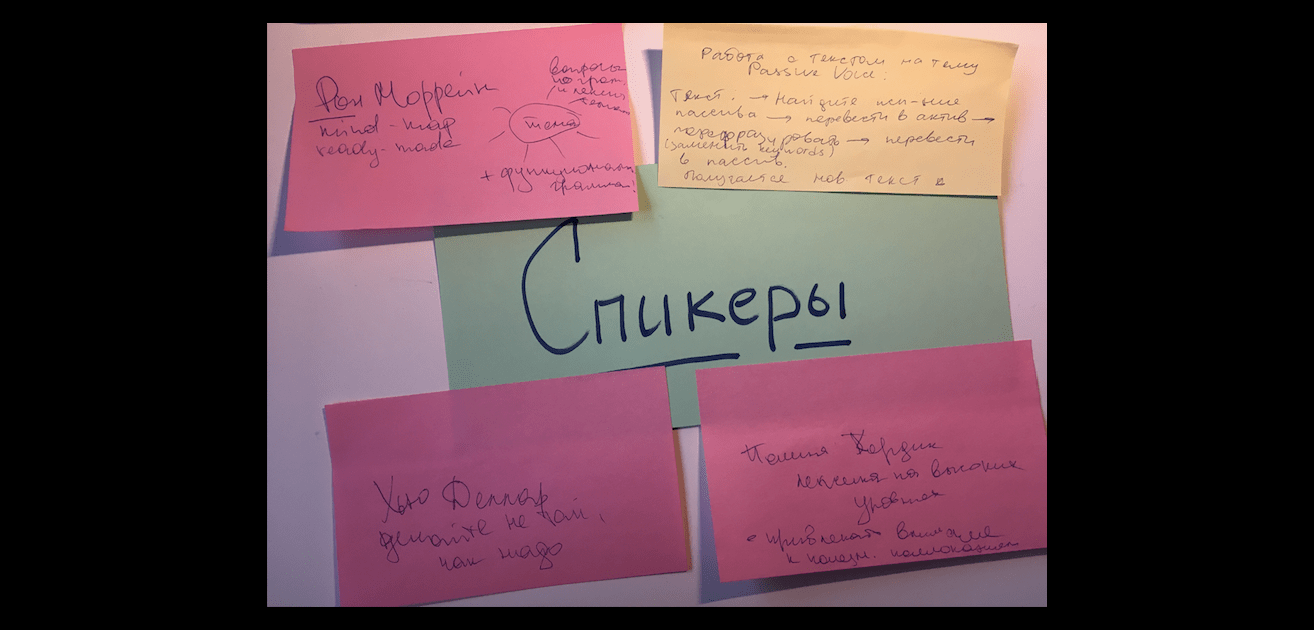 Рон Моррейн
mind-map
ready-made
вопросы
по грам.
и лексич.
тема
+ функциональн.
грамма!
Работа с текстом на тему
Passive Voice:
Текст: → Найдите
пассива → перевести в актив →
перефразировать → перевести
(заменить keywords)
в пассив.
Получается нов текст
Спикеры
Хью Деллар
делайте не так,
как надо
Полина
лексика на высоких
уровнях
• привлекать внимание
к полезн. коллокациям